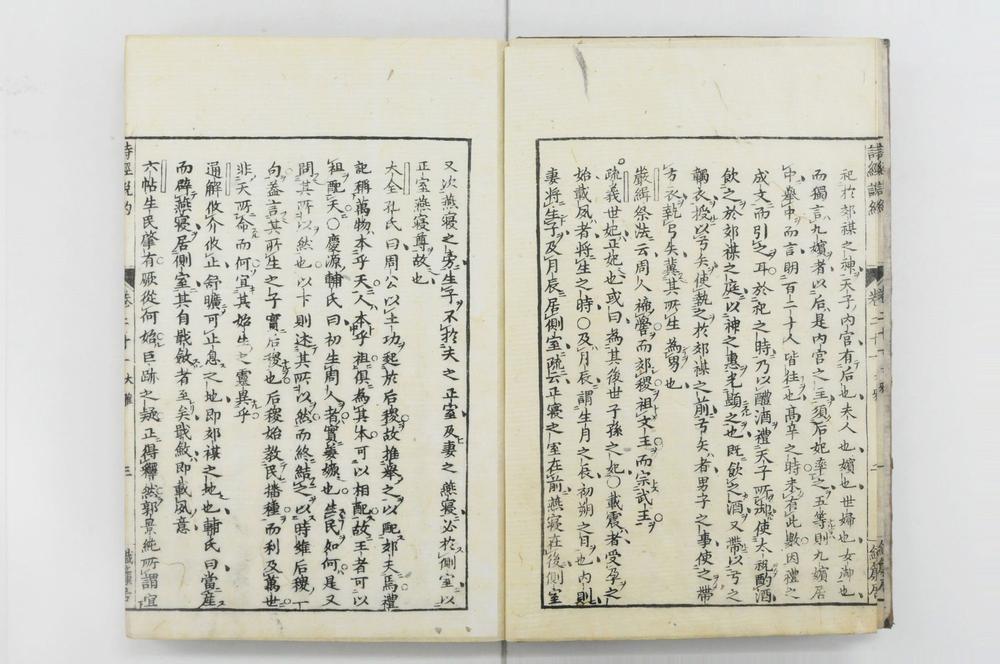 祀於郊禖之神天子内官有后也夫人也嬪也世婦也女御也
而獨言九嬪者以后是内官之主須后妃率之五等則九嬪居
中舉中而言明百二十人皆往也高辛之時未有此數因禮之
成文而引之耳於祀之時乃以醴酒禮天子所御使太祝酌酒
飲之於郊禖之庭以神之惠光顯之也既飲之酒又帶以弓之
韣衣授以弓矢使執之於郊禖之前弓矢者男子之事使之帶
弓衣執弓矢冀其所生為男也
嚴緝祭法云周人禘嚳而郊稷祖文王而宗武王
疏義世妃正妃也或曰為其後世子孫之妃○載震者受孕之
始載夙者將生之時○及月辰謂生月之辰初朔之日也内則
妻將生子及月辰居側室疏云正寢之室在前燕寢在後側室
又次燕寢之旁生子不於夫之正室及妻之燕寢必於側室以
正室燕寢尊故也
大全孔氏曰周公以王功起於后稷故推舉之以配郊夫焉禮
記稱萬物本乎天人本乎祖俱為其本可以相配故王者可以
祖配天○慶源輔氏曰初生周人者實姜嫄也生民如何是又
問其所以然也以下則述其所以然而終結之以時維后稷一
句蓋言其所生之子實后稷也后稷始教民播種而利及萬世
非天所命而何宜其始生之靈異乎
通解攸介攸止舒曠可止息之地即郊禖之地也輔氏曰當產
而辟燕寢居側室其自戢斂者至矣戢斂即載夙意
六帖生民肇有厥從何始巨跡之疑正得釋然郭景純所謂宜
詩經說約
卷二十一
大雅
三
織簾居